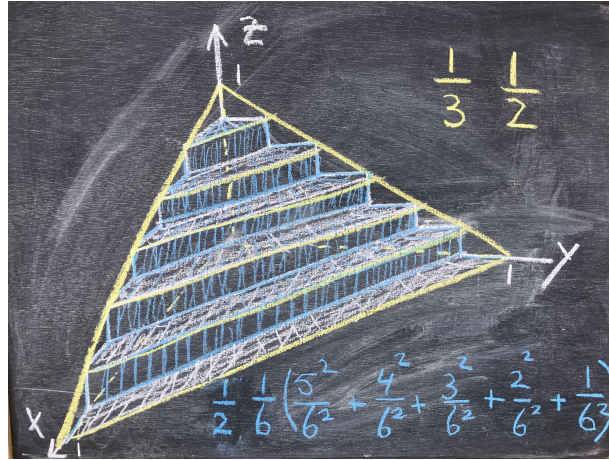 Z
1
1/3 1/2
Y
1
X
1
1/2 1/6 (5²/6² + 4²/6² + 3²/6² + 2²/6² + 1/6²)